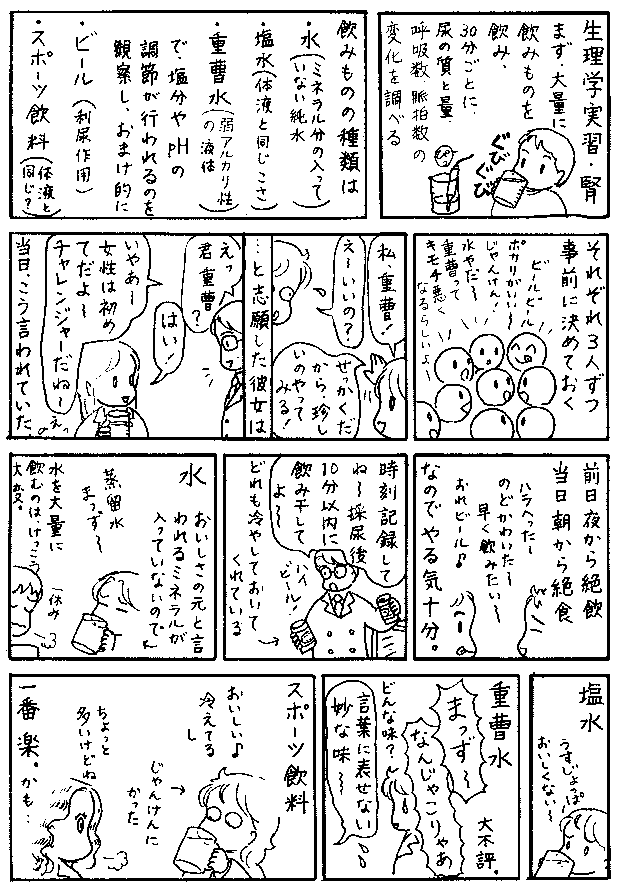 生理学実習・腎
まず、大量に
飲みものを
飲み、
30分ごとに、
尿の質と量、
呼吸数、脈拍数の
変化を調べる
ぐびぐび
飲みものの種類は
・水(ミネラル分の入って
いない純水)
・塩水(体液と同じこさ)
・重曹水(弱アルカリ性
の液体)
で、塩分やpHの
調節が行われるのを
観察し、おまけ的に
・ビール(利尿作用)
・スポーツ飲料(体液と
同じ?)
それぞれ3人ずつ
事前に決めておく
ビールビール
ポカリがいい~
じゃんけん!
水やだ~
重曹って
キモチ悪く
なるらしいよ~
私、重曹!
え~いいの?
せっかくだ
から、珍し
いのやって
みる!
…と志願した彼女は
えっ
君重曹
?
はい!
いやあ~
女性は初め
てだよ~
チャレンジャーだね~
えっ
当日、こう言われていた。
前日夜から絶飲
当日朝から絶食
ハラへった~
のどかわいた~
早く飲みたい~
おれビール♪
なのでやる気十分。
時刻記録して
ね~採尿後
10分以内に
飲み干して
よ~
ハイ
ビール!
どれも冷やしておいて
くれている
水
おいしさの元と言
われるミネラルが
入っていないので
蒸留水
まっず~
水を大量に
飲むのは、けっこう
大変。
一休み
塩水
うすしょっぱ
おいしくない~
重曹水
まっず~
なんじゃこりゃあ
大不評。
どんな味?
言葉に表せない
妙な味~
スポーツ飲料
おいしい♪
冷えてる
し
じゃんけんに
かった
ちょっと
多いけどね
一番楽。かも…